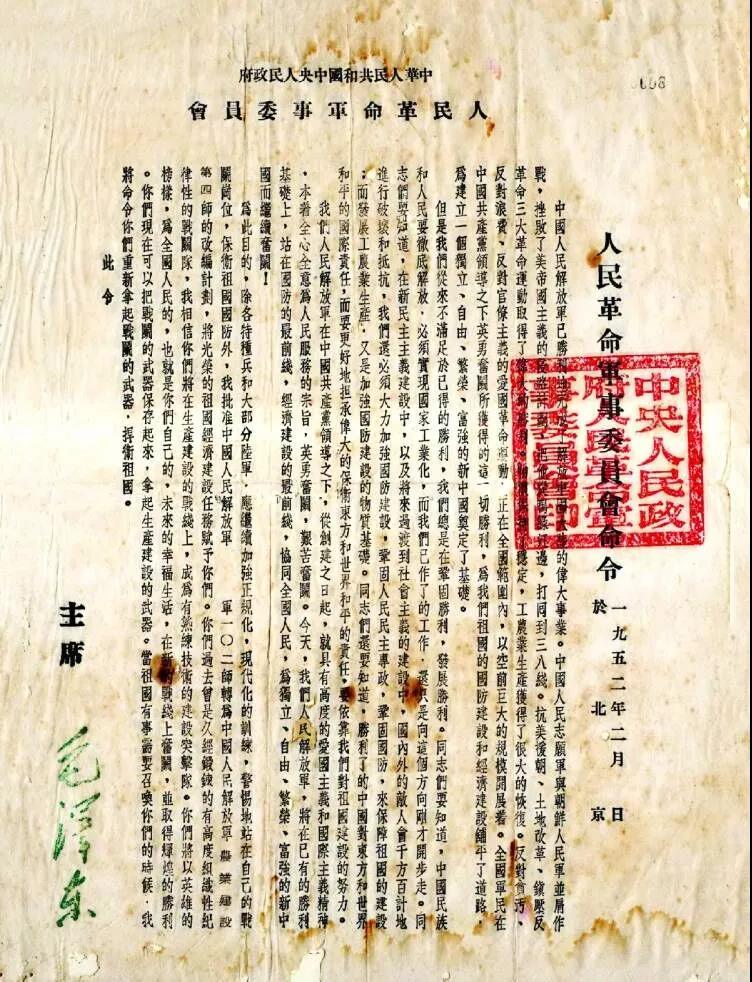 中華人民共和國中央人民政府
人民革命軍事委員會
0008
人民革命軍事委員會命令
一九五二年二月　日
於北京
中央人民政
府人民革
中國人民解放軍已勝利地完成了解放 大陸的偉大事業。中國人民志願軍與朝鮮人民軍並肩作
戰，挫敗了美帝國主義的侵略 ，把他從鴨綠江邊，打回到三八綫。抗美援朝、土地改革、鎮壓反
革命三大革命運動取得了偉大的勝利。 穩定，工農業生產獲得了很大的恢復。反對貪污、
反對浪費、反對官僚主義的愛國革命運動，正在全國範圍內，以空前巨大的規模開展着。全國軍民在
中國共產黨領導之下英勇奮鬭所獲得的這一切勝利，爲我們祖國的國防建設和經濟建設鋪平了道路，
爲建立一個獨立、自由、繁榮、富強的新中國奠定了基礎。
但是我們從來不滿足於已得的勝利，我們總是在鞏固勝利，發展勝利。同志們要知道，中國民族
和人民要徹底解放，必須實現國家工業化，而我們已作了的工作，還只是向這個方向剛才開步走。同
志們要知道，在新民主主義建設中，以及將來過渡到社會主義的建設中，國內外的敵人會千方百計地
進行破壞和抵抗，我們還必須大力加強國防建設，鞏固人民民主專政，鞏固國防，來保障祖國的建設
；而發展工農業生產，又是加強國防建設的物質基礎。同志們還要知道，勝利了的中國對東方和世界
和平的國際責任，而要更好地担承偉大的保衞東方和世界和平的責任，要依靠我們對祖國建設的努力。
我們人民解放軍在中國共產黨領導之下，從創建之日起，就具有高度的愛國主義和國際主義精神
，本着全心全意爲人民服務的宗旨，英勇奮鬭，艱苦奮鬭。今天，我們人民解放軍，將在已有的勝利
基礎上，站在國防的最前綫，經濟建設的最前綫，協同全國人民，爲獨立、自由、繁榮、富強的新中
國而繼續奮鬭！
爲此目的，除各特種兵和大部分陸軍，應繼續加強正規化，現代化的訓練，警惕地站在自己的戰
鬭崗位，保衞祖國國防外，我批准中國人民解放軍　軍一〇二師轉爲中國人民解放軍農業建設
第四師的改編計劃，將光榮的祖國經濟建設任務賦予你們。你們過去曾是久經鍛鍊的有高度組織性紀
律性的戰鬭隊，我相信你們將在生產建設的戰綫上，成爲有熟練技術的建設突擊隊。你們將以英雄的
榜樣，爲全國人民的，也就是你們自己的，未來的幸福生活，在新的戰綫上奮鬭，並取得輝煌的勝利
。你們現在可以把戰鬭的武器保存起來，拿起生產建設的武器。當祖國有事需要召喚你們的時候，我
將命令你們重新拿起戰鬭的武器，捍衞祖國。
此令
主席
毛澤东